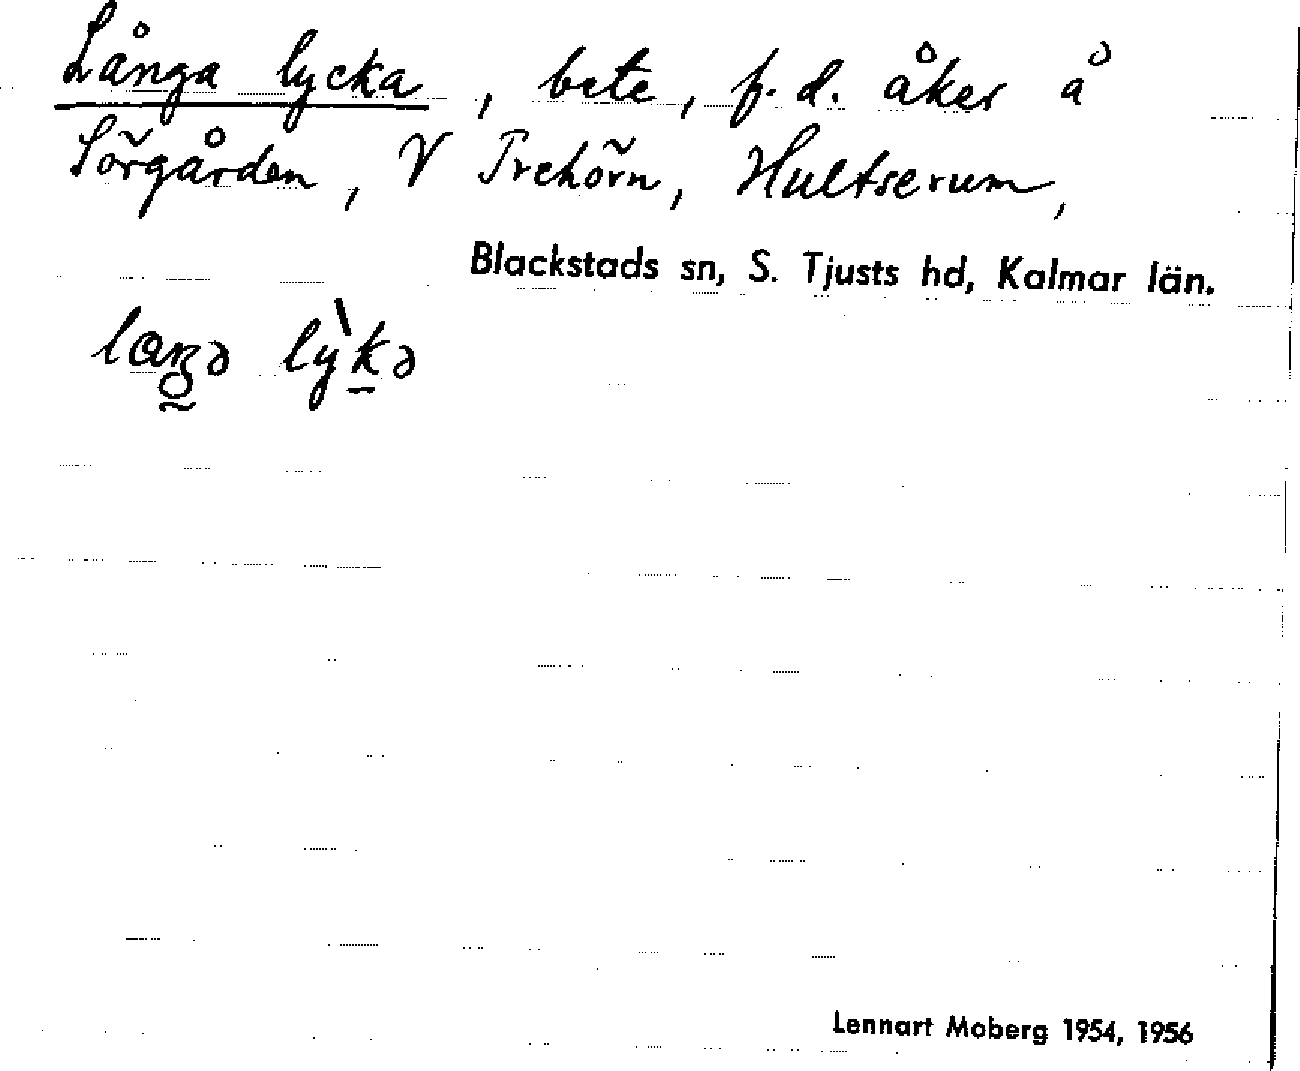 Långa lycka, bete, f.d. åker å
Sörgården, V Trehörn, Hultserum,
Blackstads sn, S. Tjusts hd, Kalmar län.
lykə
Lennart Moberg 1954, 1956